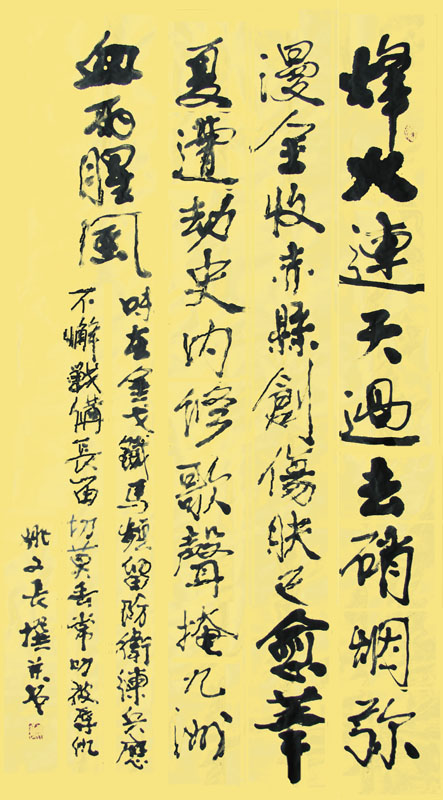 烽火連天過去硝烟弥
漫全收赤縣創傷已愈華
夏遭劫史内修歌聲掩九洲
血雨腥風
時在金戈鐵馬頻留防衛練兵應
不懈戰備長留切莫丢常被辱仇
姚文長撰并書